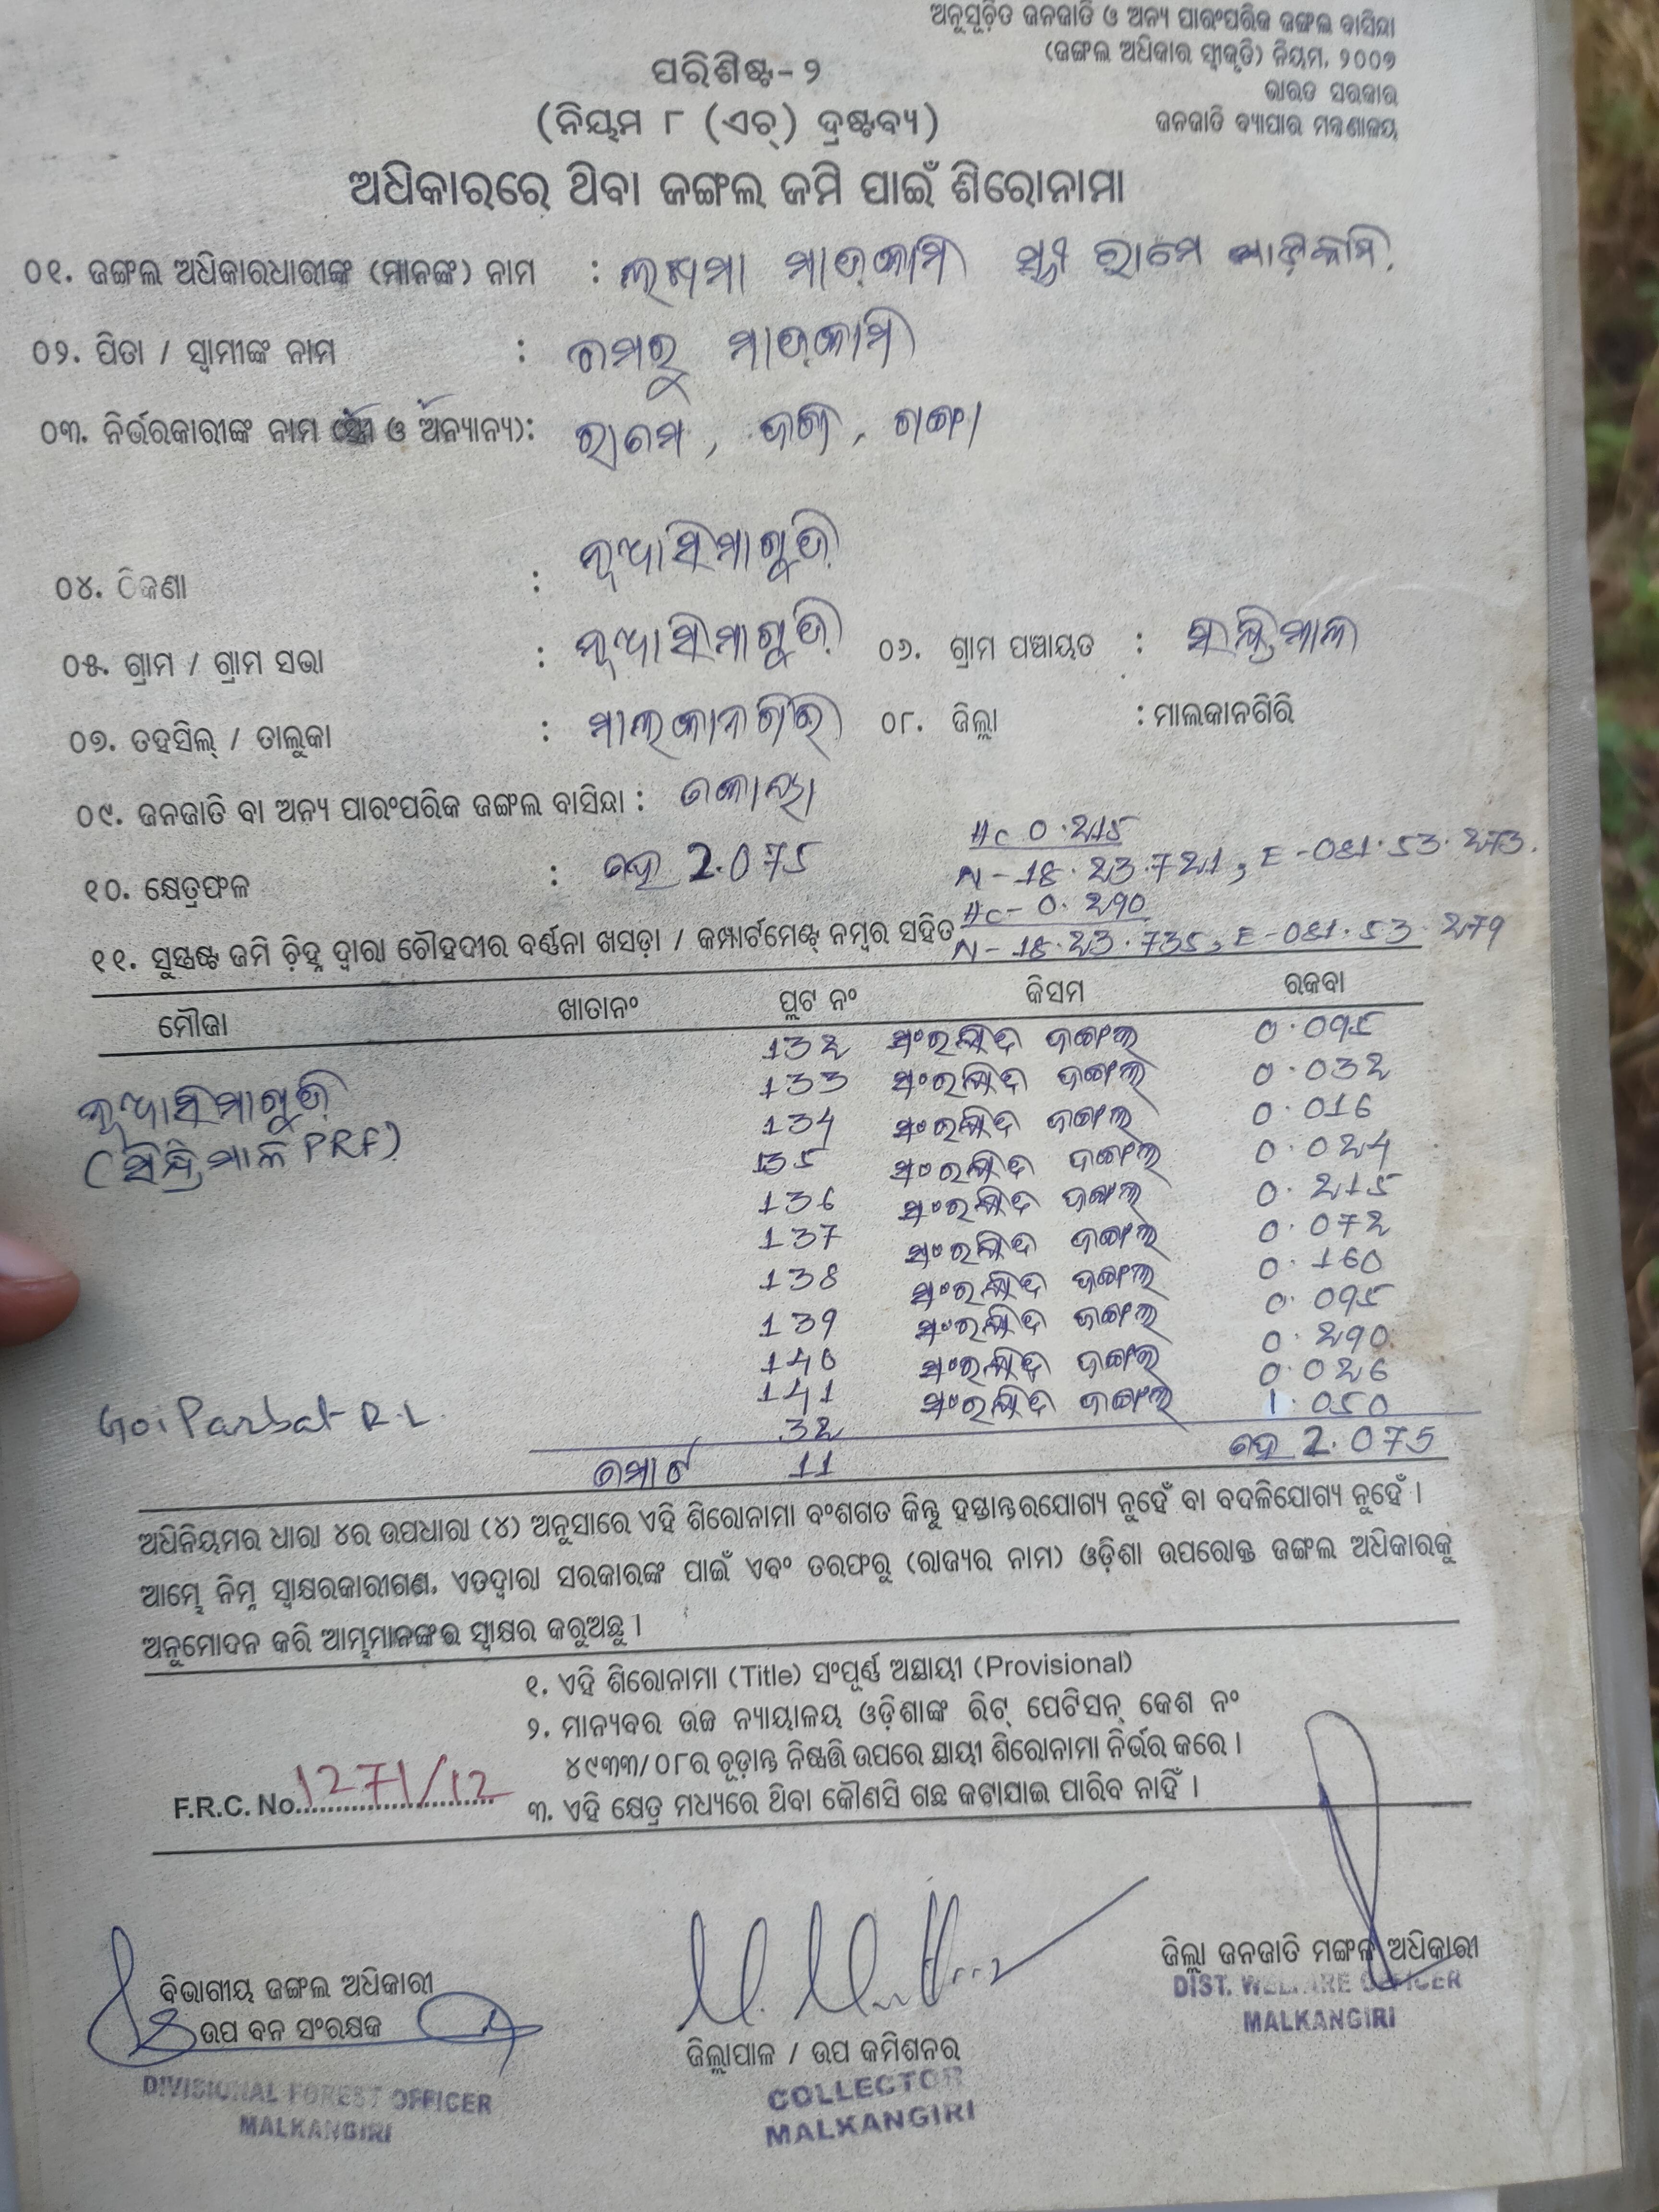 ଅନୁସୂଚିତ ଜନଜାତି ଓ ଅନ୍ୟ ପାରଂପରିକ ଜଙ୍ଗଲ ବାସିନ୍ଦା
(ଜଙ୍ଗଲ ଅଧିକାର ସ୍ୱୀକୃତି) ନିୟମ, ୨୦୦୭
ଭାରତ ସରକାର
ଜନଜାତି ବ୍ୟାପାର ମନ୍ତ୍ରଣାଳୟ
ପରିଶିଷ୍ଟ-୨
(ନିୟମ ୮ (ଏଚ୍) ଦ୍ରଷ୍ଟବ୍ୟ)
ଅଧିକାରରେ ଥିବା ଜଙ୍ଗଲ ଜମି ପାଇଁ ଶିରୋନାମା
୦୧. ଜଙ୍ଗଲ ଅଧିକାରଧାରୀଙ୍କ (ମାନଙ୍କ) ନାମ : ଲଖମା ମାଡ଼କାମି ସ୍ତ୍ରୀ ରାମେ ମାଡ଼କାମି
୦୨. ପିତା / ସ୍ୱାମୀଙ୍କ ନାମ : ମେରୁ ମାଡ଼କାମି
୦୩. ନିର୍ଭରକାରୀଙ୍କ ନାମ (ସ୍ତ୍ରୀ ଓ ଅନ୍ୟାନ୍ୟ): ରାମେ, ଗଙ୍ଗା
୦୪. ଠିକଣା : ନୂଆସିମାଗୁଡ଼ି
୦୫. ଗ୍ରାମ / ଗ୍ରାମ ସଭା : ନୂଆସିମାଗୁଡ଼ି ୦୬. ଗ୍ରାମ ପଞ୍ଚାୟତ :
୦୭. ତହସିଲ୍ / ତାଲୁକା : ମାଲକାନଗିରି ୦୮. ଜିଲ୍ଲା : ମାଲକାନଗିରି
୦୯. ଜନଜାତି ବା ଅନ୍ୟ ପାରଂପରିକ ଜଙ୍ଗଲ ବାସିନ୍ଦା : କୋୟା
Hc 0.215
୧୦. କ୍ଷେତ୍ରଫଳ : ହେ 2.075 N-18.23.721, E-081.53.273.
Hc- 0.290
୧୧. ସୁସ୍ପଷ୍ଟ ଜମି ଚିହ୍ନ ଦ୍ୱାରା ଚୌହଦୀର ବର୍ଣ୍ଣନା ଖସଡ଼ା / କମ୍ପାର୍ଟମେଣ୍ଟ୍ ନମ୍ବର ସହିତ N-18.23.735, E-081.53.279
ମୌଜା ଖାତାନଂ ପ୍ଲଟ ନଂ କିସମ ରକବା
132 ସଂରକ୍ଷିତ ଜଙ୍ଗଲ 0.095
ନୂଆସିମାଗୁଡ଼ି 133 ସଂରକ୍ଷିତ ଜଙ୍ଗଲ 0.032
(ସିନ୍ଦ୍ରିମାଲ PRF) 134 ସଂରକ୍ଷିତ ଜଙ୍ଗଲ 0.016
135 ସଂରକ୍ଷିତ ଜଙ୍ଗଲ 0.024
136 ସଂରକ୍ଷିତ ଜଙ୍ଗଲ 0.215
137 ସଂରକ୍ଷିତ ଜଙ୍ଗଲ 0.072
138 ସଂରକ୍ଷିତ ଜଙ୍ଗଲ 0.160
139 ସଂରକ୍ଷିତ ଜଙ୍ଗଲ 0.095
140 ସଂରକ୍ଷିତ ଜଙ୍ଗଲ 0.290
141 ସଂରକ୍ଷିତ ଜଙ୍ଗଲ 0.026
Goi Parbat R.L. 32 1.050
ମୋଟ 11 ହେ 2.075
ଅଧିନିୟମର ଧାରା ୪ର ଉପଧାରା (୪) ଅନୁସାରେ ଏହି ଶିରୋନାମା ବଂଶଗତ କିନ୍ତୁ ହସ୍ତାନ୍ତରଯୋଗ୍ୟ ନୁହେଁ ବା ବଦଳିଯୋଗ୍ୟ ନୁହେଁ ।
ଆମ୍ଭେ ନିମ୍ନ ସ୍ୱାକ୍ଷରକାରୀଗଣ, ଏତଦ୍ଵାରା ସରକାରଙ୍କ ପାଇଁ ଏବଂ ତରଫରୁ (ରାଜ୍ୟର ନାମ) ଓଡ଼ିଶା ଉପରୋକ୍ତ ଜଙ୍ଗଲ ଅଧିକାରକୁ
ଅନୁମୋଦନ କରି ଆମ୍ଭମାନଙ୍କର ସ୍ୱାକ୍ଷର କରୁଅଛୁ ।
୧. ଏହି ଶିରୋନାମା (Title) ସଂପୂର୍ଣ୍ଣ ଅସ୍ଥାୟୀ (Provisional)
୨. ମାନ୍ୟବର ଉଚ୍ଚ ନ୍ୟାୟାଳୟ ଓଡ଼ିଶାଙ୍କ ରିଟ୍ ପେଟିସନ୍ କେଶ ନଂ
୪୯୩୩/୦୮ର ଚୂଡ଼ାନ୍ତ ନିଷ୍ପତ୍ତି ଉପରେ ସ୍ଥାୟୀ ଶିରୋନାମା ନିର୍ଭର କରେ ।
F.R.C. No. 1271/12 ୩. ଏହି କ୍ଷେତ୍ର ମଧ୍ୟରେ ଥିବା କୌଣସି ଗଛ କଟାଯାଇ ପାରିବ ନାହିଁ ।
ବିଭାଗୀୟ ଜଙ୍ଗଲ ଅଧିକାରୀ
ଉପ ବନ ସଂରକ୍ଷକ
DIVISIONAL FOREST OFFICER
MALKANGIRI
ଜିଲ୍ଲାପାଳ / ଉପ କମିଶନର
COLLECTOR
MALKANGIRI
ଜିଲ୍ଲା ଜନଜାତି ମଙ୍ଗଳ ଅଧିକାରୀ
DIST. WELFARE OFFICER
MALKANGIRI